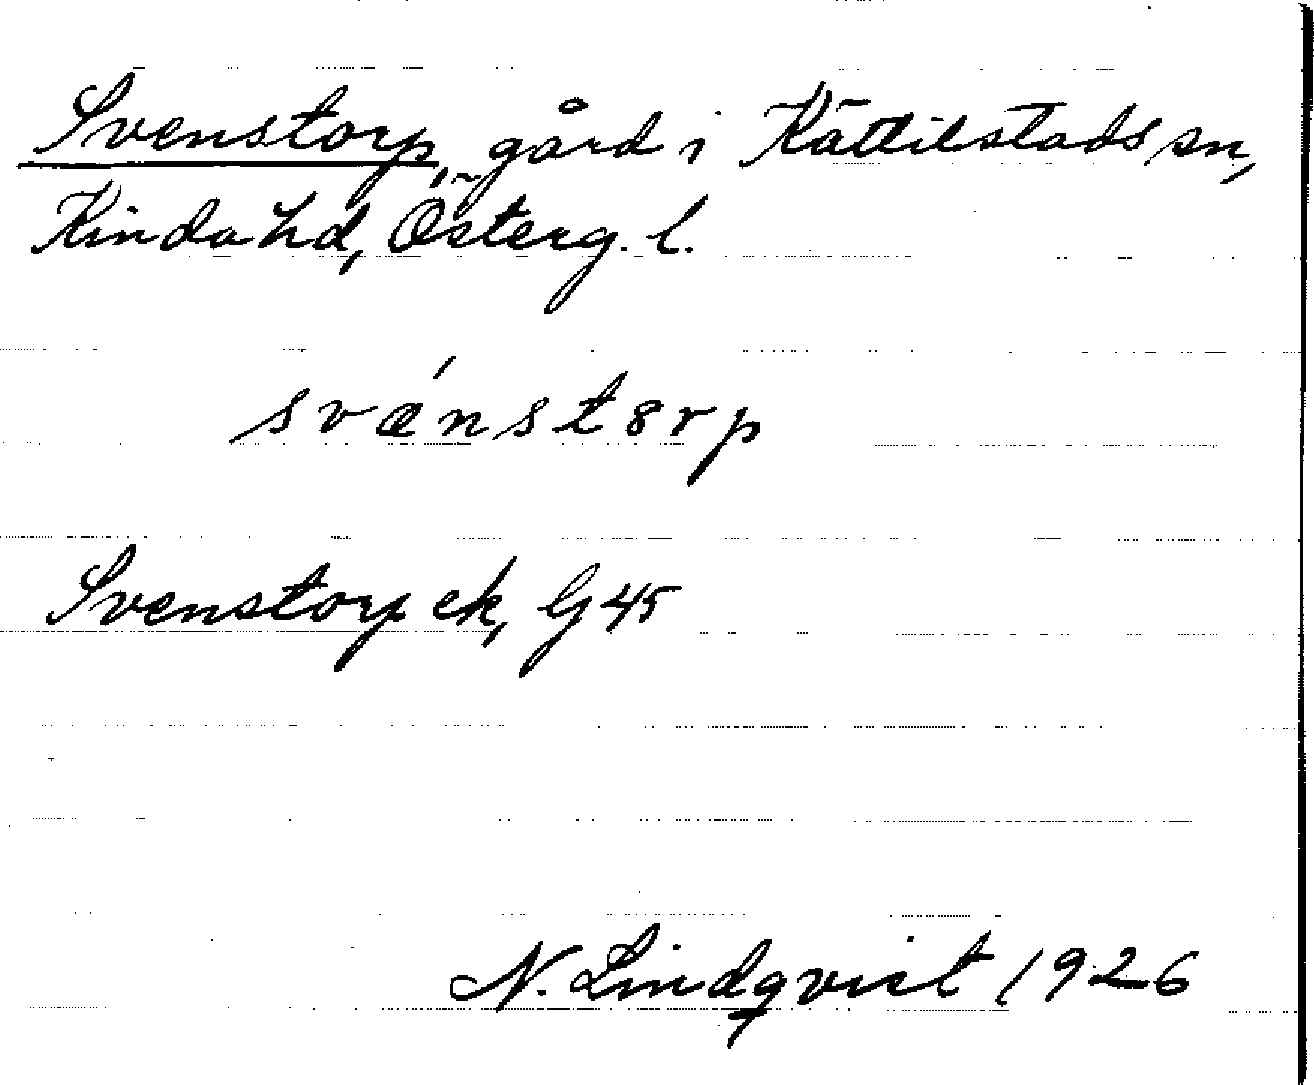 Svenstorp, gård i Kättilstads sn,
Kinda hd, Österg. l.
svǽnstȣrp
Svenstorp ek, G 45
N. Lindqvist 1926